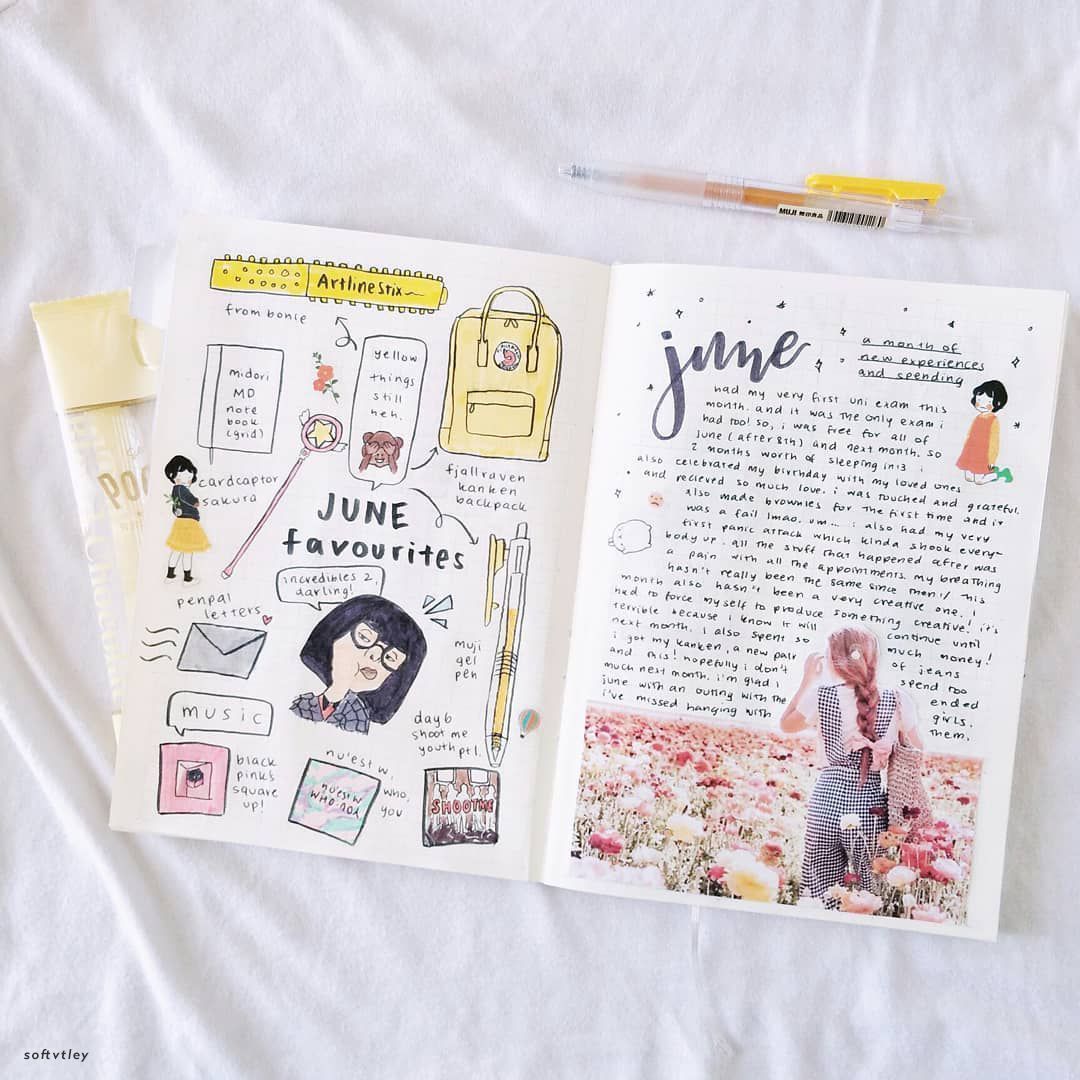 MUJI 無印良品
ArtlineStix
from bonie
yellow
things
still
heh.
midori
MD
note
book
(grid)
cardcaptor
sakura
fjallraven
kanken
backpack
JUNE
favourites
incredibles 2,
darling!
penpal
letters
muji
gel
pen
music
day6
shoot me
youth pt1.
black
pink's
square
up!
nu'est w,
who,
you
nu'est w
WHO YOU
SHOOT ME
june
a month of
new experiences
and spending
had my very first uni exam this
month. and it was the only exam i
had too! so, i was free for all of
june (after 8th) and next month. so
2 months worth of sleeping in :3 i
also celebrated my birthday with my loved ones
and recieved so much love. i was touched and grateful.
also made brownies for the first time and it
was a fail lmao. um... i also had my very
first panic attack which kinda shook every-
body up. all the stuff that happened after was
a pain with all the appointments. my breathing
hasn't really been the same since then :/ this
month also hasn't been a very creative one. i
had to force myself to produce something creative! it's
terrible because i know it will continue until
next month. i also spent so much money!
i got my kanken, a new pair of jeans
and this! hopefully i don't spend too
much next month. i'm glad i ended
june with an outing with the girls.
i've missed hanging with them.
POC
softvtley